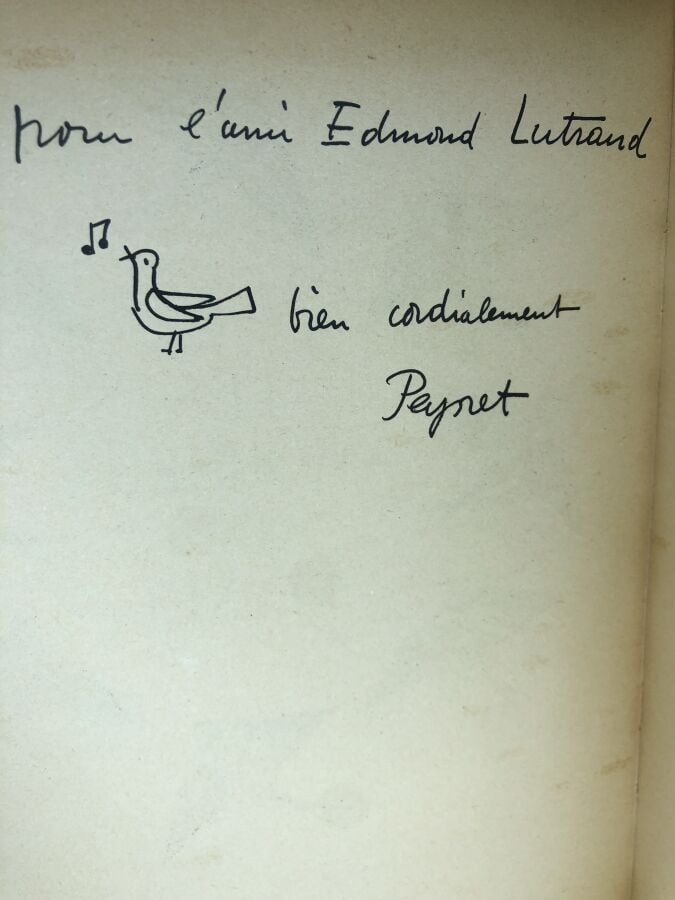 pour l'ami Edmond Lutrand
bien cordialement
Peynet